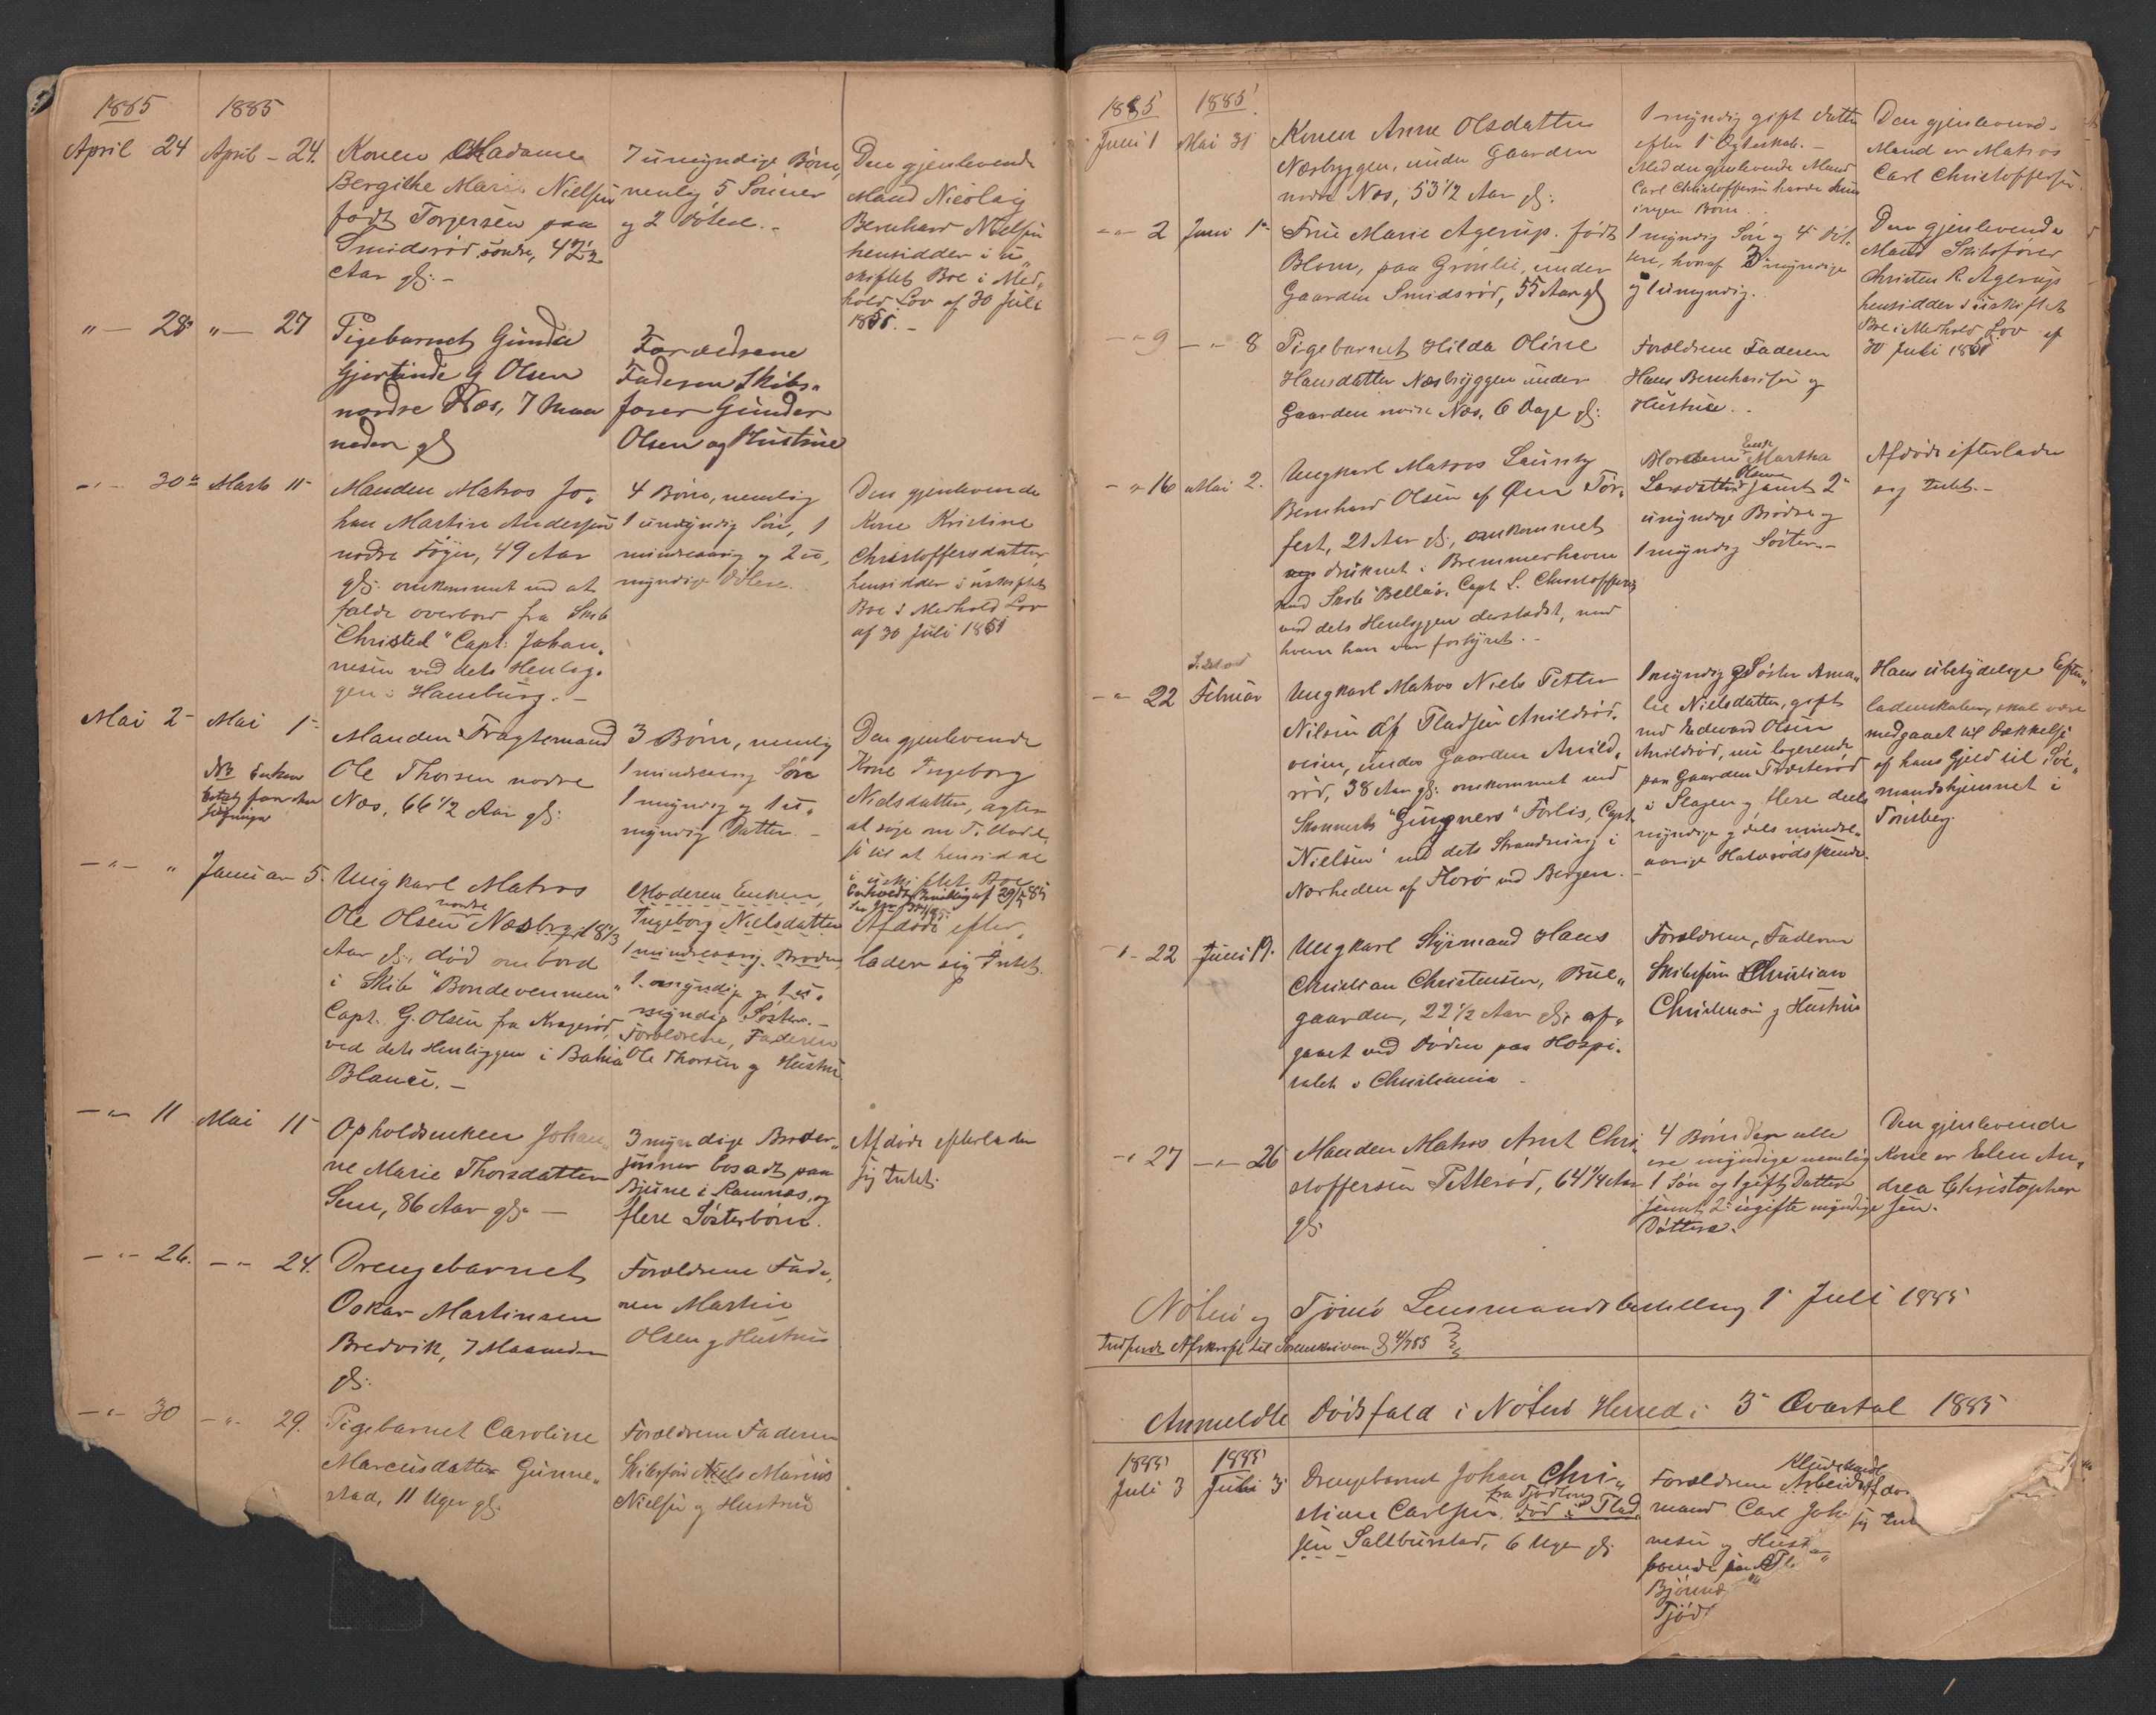 1885
1885
April 24
April - 24.
Konen Madame
Bergithe Marie Nielsen
født Torgersen paa
Smidsrød søndre, 42½
Aar gl: -
7 umyndige Børn,
nemlig 5 Sønner
og 2 Døtre. -
Den gjenlevende
Mand Nicolai
Bernhard Nielsen
hensidder i u„
skiftet Boe i Med„
hold Lov af 30 Juli
1851. -
" - 28
" - 27
Pigebarnet Gunda
G Olsen
nordre Næs, 7 Maa
neder gl
Forældrene
Faderen Skibs„
fører Gunder
Olsen og Hustrue
- " - 30
Marts 11
Manden Matros Jo„
han Martin Andersen
nodre Føyn, 49 Aar
gl: omkommet ved at
falde overbord fra Skib
"Christed" Capt: Johan„
nesen ved dets Henlig„
gen i Hamburg. -
4 Børn, nemlig
1 umyndig Søn, 1
mindreaarig og 2 u„
myndige Døtre.
Den gjenlevende
Kone Kristine
Christoffersdatter,
hensidder i uskiftet
Boe i Medhold Lov
af 30 Juli 1851
Mai 2
Mai 1
Manden Fragtemand
Ole Thorsen nordre
Næs, 66½ Aar gl:
3 Børn, nemlig
1 mindreaarig Søn
1 myndig og 1 u„
myndig Datter. -
Den gjenlevende
Kone Ingeborg
Nielsdatter, agter
at søge om Tillad„
se til at hensidde
i uskiftet Boe
NB Enken
- " - "
Januar 5.
Ungkarl Matros
Ole Olsen nordre Næsbryg 18⅓
Aar gl:, død ombord
i Skib "Bondevennen"
Capt. G. Olsen fra Kragerø,
ved dets Henliggen i Bahia
Blanca. -
Moderen Enken,
Ingeborg Nielsdatter
1 mindreaarig Broder,
1 myndig og 1 u„
myndig Søster. -
Forældrene, Faderen
Ole Thorsen og Hustru
Afdøde efter„
lader sig Intet.
- " - 11
Mai 11
Opholdsenken Johan„
ne Marie Thorsdatter
Sem, 86 Aar gl: -
3 myndige Broder„
sønner bosadt paa
Bjune i Ramnæs, og
flere Søsterbørn.
Afdøde efterlader
sig Intet.
- " - 26.
- " - 24.
Drengebarnet
Oskar Martinsen
Bredvik, 7 Maaneder
gl:
Forældrene Fade„
ren Martin
Olsen og Hustrue
- " - 30
- " - 29.
Pigebarnet Caroline
Marcusdatter Gunne„
stad, 11 Uger gl:
Forældrene Faderen
Skibsfører Niels Marius
Nielsen og Hustrue
1885
1885
Juni 1
Mai 31
Konen Anne Olsdatter
Næsbryggen, under Gaarden
nodre Næs, 53½ Aar gl:
1 myndig gift Datter
efter 1 Ægteskab. -
Med den gjenlevende Mand
Carl Christoffersen havde hun
ingen Børn.
Den gjenlevende
Mand er Matros
Carl Christoffersen
- " - 2
Juni 1
Frue Marie Agerup. født
Blom, paa Grønlie, under
Gaarden Smidsrød, 55 Aar gl
1 myndig Søn og 4 Døt„
tre, hvoraf 3 myndige
og 1 umyndig.
Den gjenlevende
Mand Skibsfører
Christen R. Agerup
hensidder i uskiftet
Boe i Medhold Lov af
30 Juli 1851
- " 9
- " - 8
Pigebarnet Hilda Oline
Hansdatter Næsbryggen under
Gaarden nodre Næs, 6 Dage gl:
Forældrene Faderen
Hans Bernhardsen og
Hustrue.
- " 16
Mai 2.
Ungkarl Matros Lauritz
Bernhard Olsen af Øen Tor„
fest, 21 Aar gl:, omkommet
druknet i Bremmerhaven
ved Skib "Bellas" Capt L. Christoffersen
ved dets Henliggen dersteds, med
hvem han var forhyret. -
Moderen Enke Martha
Larsdatter Olsen samt 2
umyndige Brødre og
1 myndig Søster. -
Afdøde efterlader
sig Intet. -
- " - 22
Februar
Ungkarl Matros Niels Petter
Nilsen af Pladsen Arildsrød„
eien, under Gaarden Arild„
rød, 38 Aar gl: omkommet ved
Skonnert "Gungners" Forlis, Capt
"Nielsen" ved dets Strandning i
Nærheden af Florø ved Bergen.
1 myndig Søster Ama„
lie Nielsdatter, gift
med Edward Olsen
Arildsrød, nu logerende
paa Gaarden Træterød
i Slagen og flere deels
myndige og dels mindre„
aarige Halvsødskende.
Hans ubetydelige Efter„
ladenskaber, skal være
medgaaet til Dækkelse
af hans Gjeld til Sø„
mandshjemmet i
Tønsberg.
- " - 22
Juni 19.
Ungkarl Styrmand Hans
Christian Christensen, Bue„
gaarden, 22½ Aar gl: af„
gaaet ved Døden paa Hospi„
talet i Christiania -
Forældrene, Faderen
Skibsfører Christian
Christensen og Hustrue
- " 27
- " - 26
Manden Matros Arnt Chri„
stoffersen Petterød, 64¼ Aar
gl:
4 Børn der alle
ere myndige nemlig
1 Søn og 1 gift Datter
samt 2 ugifte myndige
Døttre.
Den gjenlevende
Kone er Elen An„
drea Christopher
sen.
Nøterø og Tjømø Lensmandsbestilling 1 Juli 1885
Indsendt Afskrift til Sorenskriveren d 4/7 85
Anmeldte Dødsfald i Nøterø Herred i 3 Qvartal 1885
1885
1885
Juli 3
Juli 3
Drengebarnet Johan Chri„
stian Carlsen, fra Tjødling død i Plad„
sen Saltburstad, 6 Uger gl:
Forældrene Arbeids
mand Carl Joh
nesen og Hust
boende paa
Bjønnes
Tjød